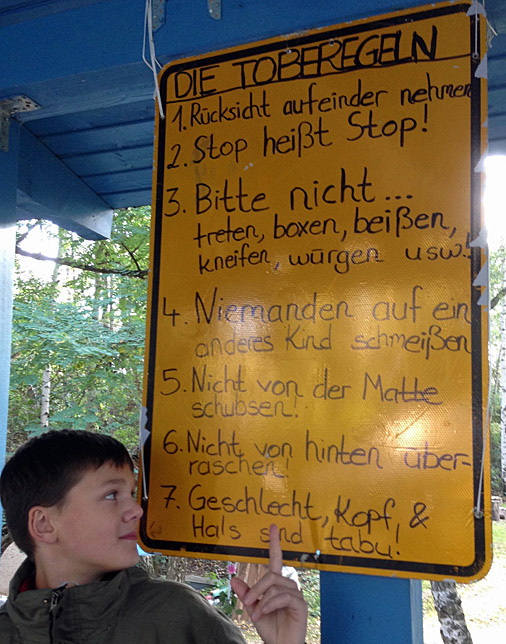 DIE TOBEREGELN
1. Rücksicht aufeinder nehmen
2. Stop heißt Stop!
3. Bitte nicht...
treten, boxen, beißen,
kneifen, würgen usw.!
4. Niemanden auf ein
anderes Kind schmeißen
5. Nicht von der Matte
schubsen!
6. Nicht von hinten über-
raschen!
7. Geschlecht, Kopf, &
Hals sind tabu!